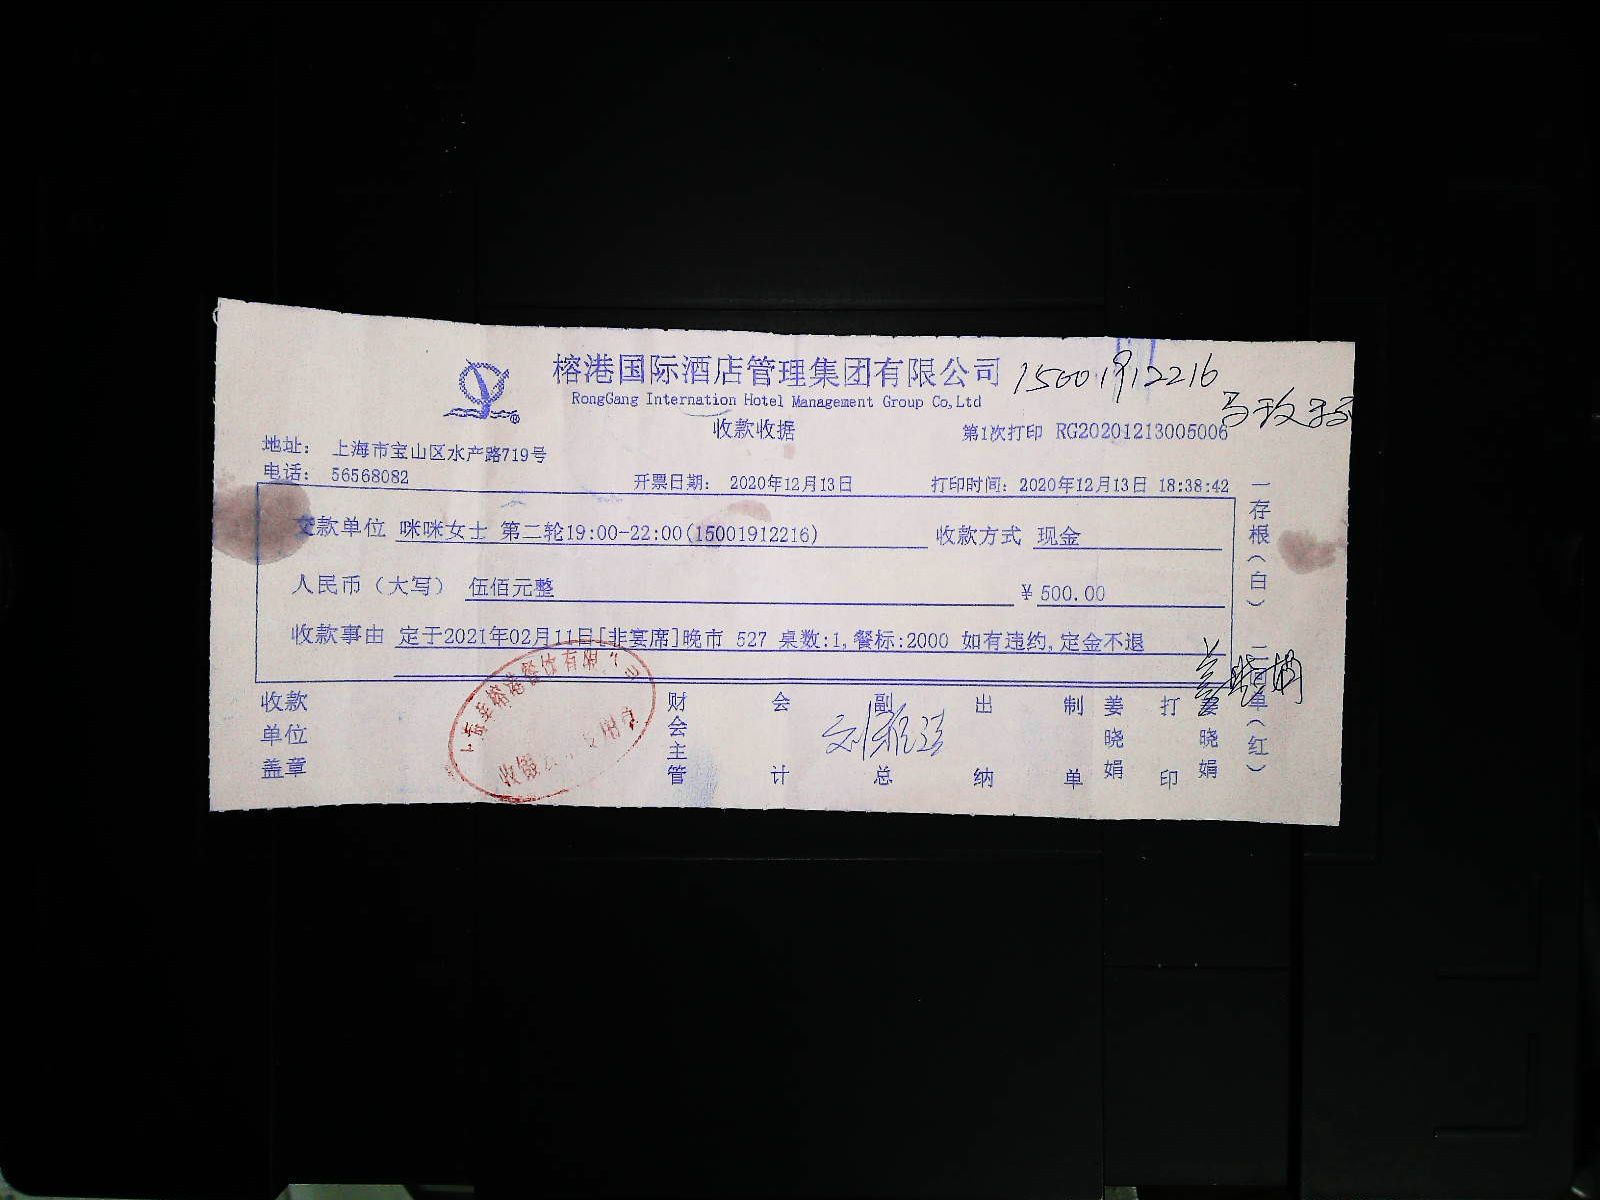 榕港国际酒店管理集团有限公司 15001912216
RongGang Internation Hotel Management Group Co,Ltd
收款收据 第1次打印 RG20201213005006
地址： 上海市宝山区水产路719号
电话： 56568082 开票日期： 2020年12月13日 打印时间：2020年12月13日 18:38:42
交款单位 咪咪女士 第二轮19:00-22:00(15001912216) 收款方式 现金
人民币（大写） 伍佰元整 ¥500.00
收款事由 定于2021年02月11日[非宴席]晚市 527 桌数:1,餐标:2000 如有违约,定金不退
一存根（白） 二回单（红）
收款单位盖章 财会主管 会计 副总 出纳 制单 姜晓娟 打印 姜晓娟
姜晓娟
榕港餐饮有限